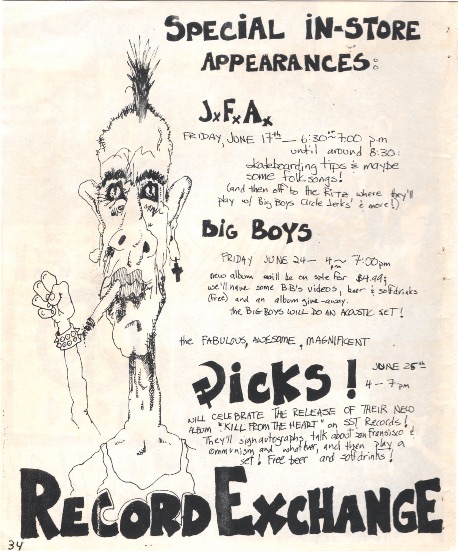 SPECIAL IN-STORE
APPEARANCES:
J.F.A.
FRIDAY, JUNE 17th — 6:30~7:00 p.m
until around 8:30:
skateboarding tips & maybe
some folk songs!
(and then off to the RITZ where they'll
play w/ BIG BOYS CIRCLE JERKS' & more!)
BIG BOYS
FRIDAY JUNE 24 — 4 ~ 7:00pm
new album will be on sale for $4.99;
we'll have some B.B's videos, beer & softdrinks
(free) and an album give-away.
the BIG BOYS WILL DO AN ACOUSTIC SET!
the FABULOUS, AWESOME, MAGNIFICENT
Dicks! JUNE 25th
4 - 7 pm
WILL CELEBRATE THE RELEASE OF THEIR NEW
ALBUM "KILL FROM THE HEART" on SST Records!
They'll sign autographs, talk about San Francisco &
communism and whatever, and then play a
set! Free beer and softdrinks!
RECORD EXCHANGE
34